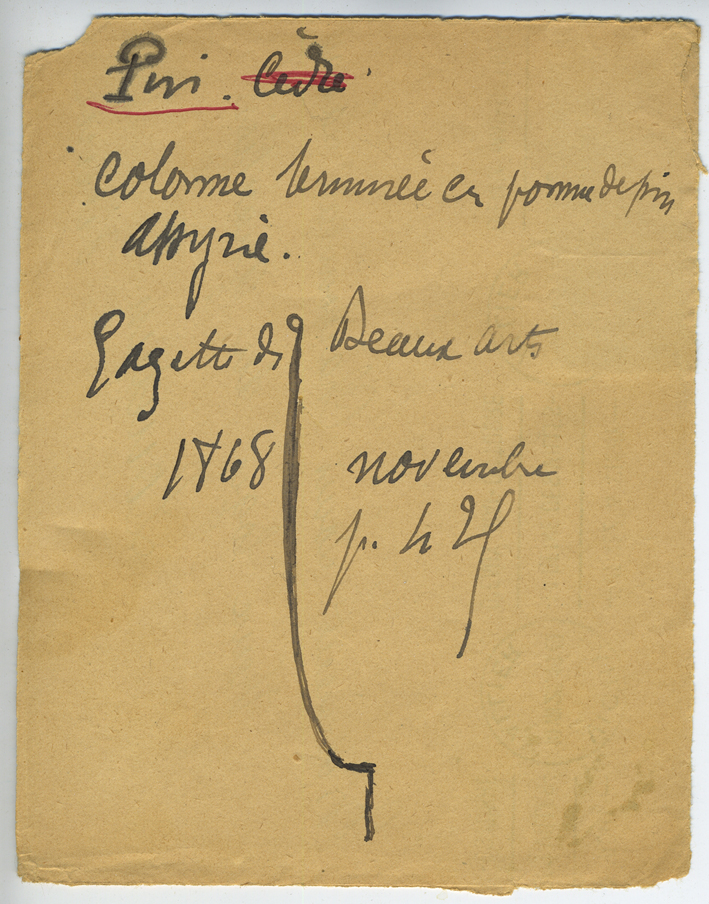 Pin. Cèdre
Colonne terminée en pomme de pin
assyrie.
Gazette des Beaux arts
1868 novembre
p. 425